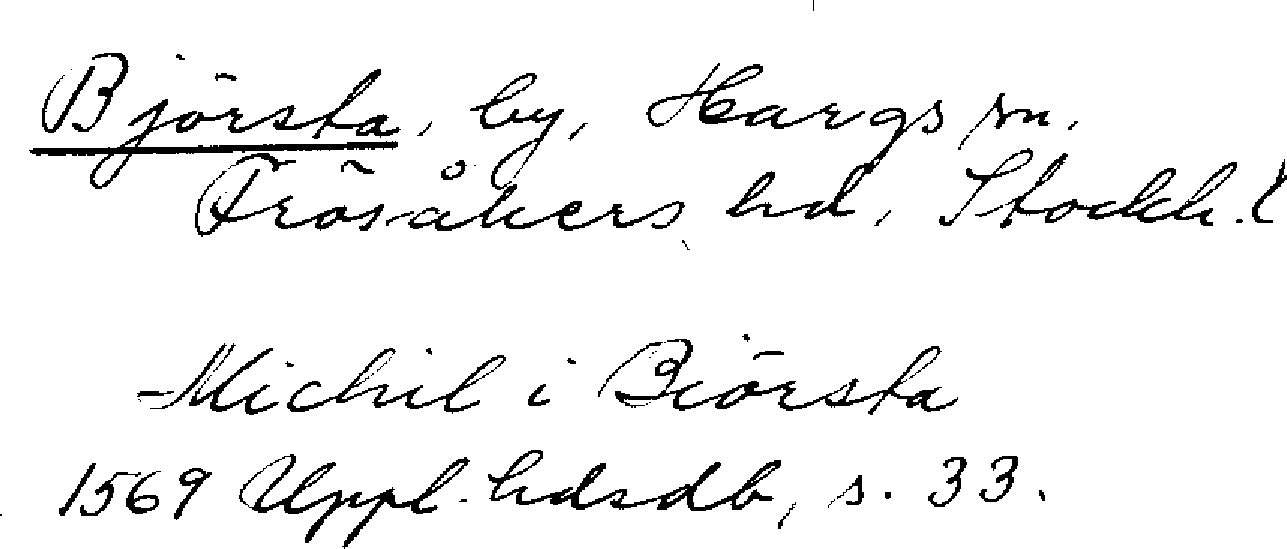 Björsta, by, Hargs sn.
Frösåkers hd, Stockh. l
Michil i Biörsta
1569 Uppl. hdsdb, s. 33.